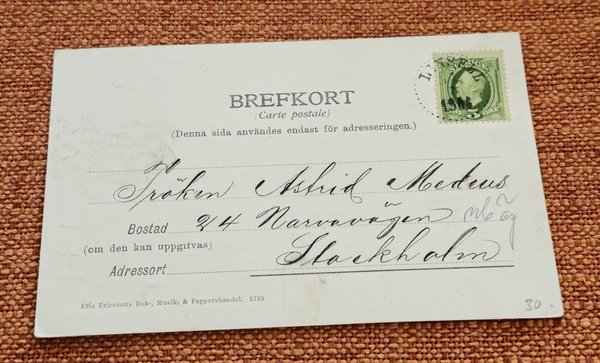 BREFKORT
(Carte postale)
(Denna sida användes endast för adresseringen.)
5
Fröken Astrid Medeus
Bostad 24 Narvavägen
(om den kan uppgifvas)
Adressort Stockholm
Eric Ericssons Bok-, Musik- & Pappershandel. 3129
30-